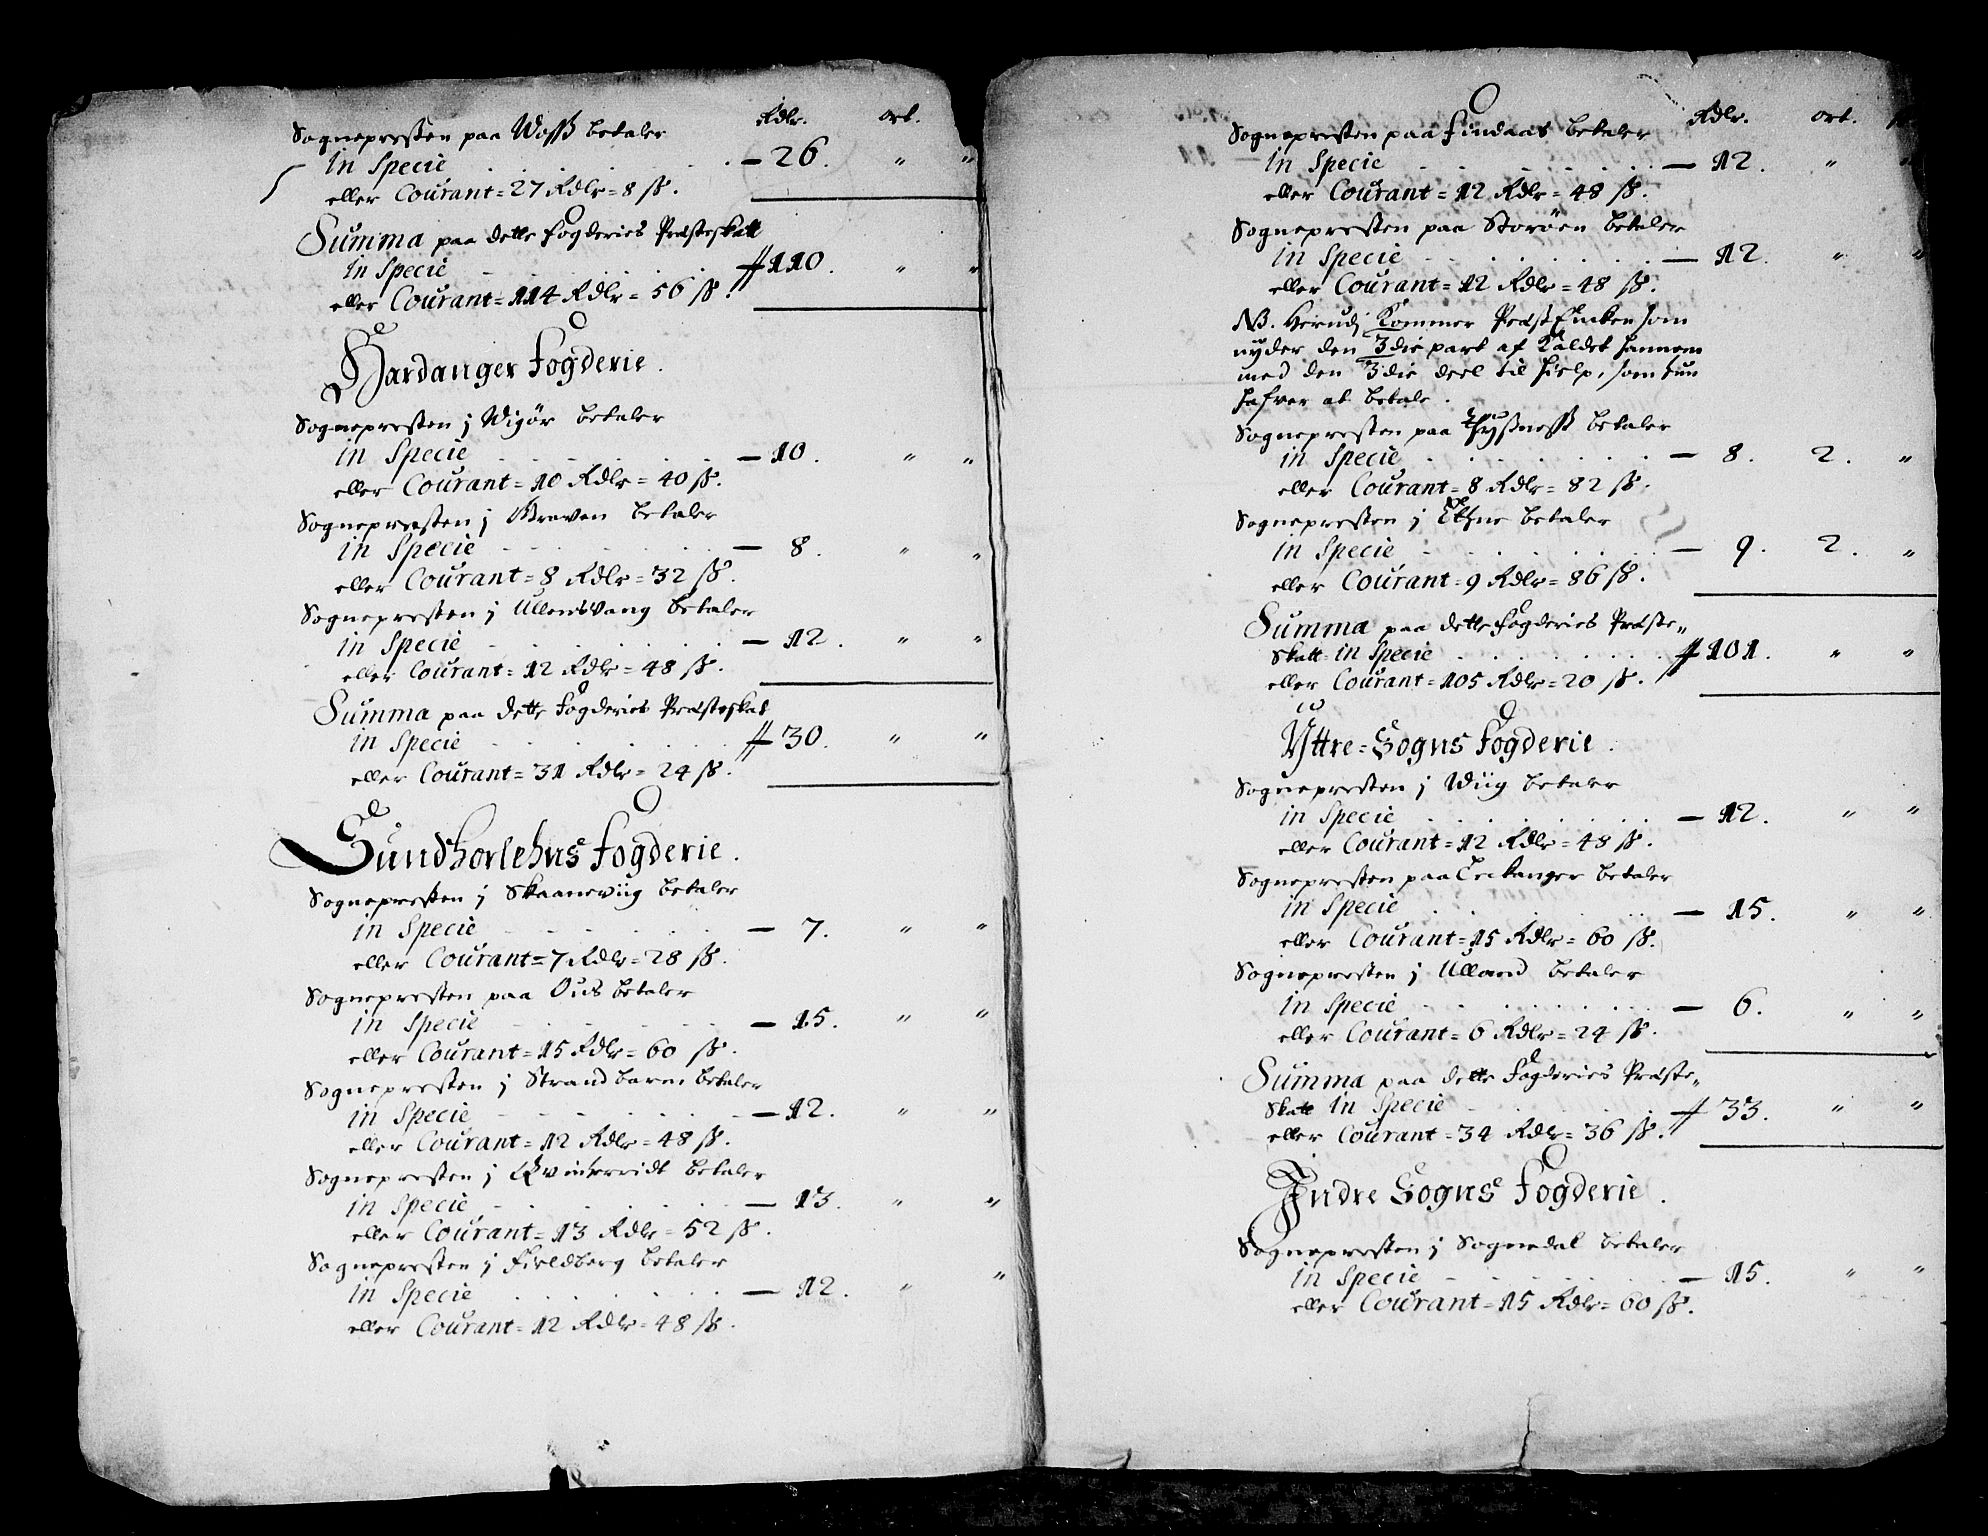 Rdlr. ort.
Sognepresten paa Woss betaler
In Specie — 26. " "
eller Courant = 27 Rdlr = 8 ss.
Summa paa dette fogderies Præsteskatt
In Specie 110. " "
eller Courant = 114 Rdlr = 56 ss.
Hardanger Fogderie.
Sognepresten j Wigør betaler
in Specie — 10. " "
eller Courant = 10 Rdlr = 40 ss.
Sognepresten j Graven betaler
in Specie — 8. " "
eller Courant = 8 Rdlr = 32 ss.
Sognepresten j Ullensvang betaler
in Specie — 12. " "
eller Courant = 12 Rdlr = 48 ss.
Summa paa dette Fogderies Præsteskat
in Specie 30. " "
eller Courant = 31 Rdlr = 24 ss.
Sundhorlehns Fogderie.
Sognepresten j Skaaneviig betaler
in Specie — 7. " "
eller Courant = 7 Rdlr = 28 ss.
Sognepresten paa Ous betaler
in Specie — 15. " "
eller Courant = 15 Rdlr = 60 ss.
Sognepresten j Strandbarm betaler
in Specie — 12. " "
eller Courant = 12 Rdlr = 48 ss.
Sognepresten j Qvinherridt betaler
in Specie — 13. " "
eller Courant = 13 Rdlr = 52 ss.
Sognepresten j Fieldberg betaler
in Specie — 12. " "
eller Courant = 12 Rdlr = 48 ss.
Rdlr. ort.
Sognepresten paa Findaas betaler
in Specie — 12. " "
eller Courant = 12 Rdlr = 48 ss.
Sognepresten paa Storøen betaler
in Specie — 12. " "
eller Courant = 12 Rdlr = 48 ss.
NB. Herudj Kommer Præst Enken som
nyder den 3die part af Kaldet hannem
med den 3die deel til hielp, som hun
hafver at betale.
Sognepresten paa Thysness betaler
in Specie — 8. 2. "
eller Courant = 8 Rdlr = 82 ss.
Sognepresten j Ethne betaler
in Specie — 9. 2. "
eller Courant = 9 Rdlr = 86 ss.
Summa paa dette Fogderies Præste„
Skatt in Specie 101. " "
eller Courant = 105 Rdlr = 20 ss.
Yttre = Sogns Fogderie.
Sognepresten j Wiig betaler
in Specie — 12. " "
eller Courant = 12 Rdlr = 48 ss.
Sognepresten paa Leekanger betaler
in Specie — 15. " "
eller Courant = 15 Rdlr = 60 ss.
Sognepresten j Ulland betaler
in Specie — 6. " "
eller Courant = 6 Rdlr = 24 ss.
Summa paa dette Fogderies Præste„
Skatt in Specie 33. " "
eller Courant = 34 Rdlr = 36 ss.
Indre Sogns Fogderie.
Sognepresten j Sognedal betaler
in Specie — 15. " "
eller Courant = 15 Rdlr = 60 ss.